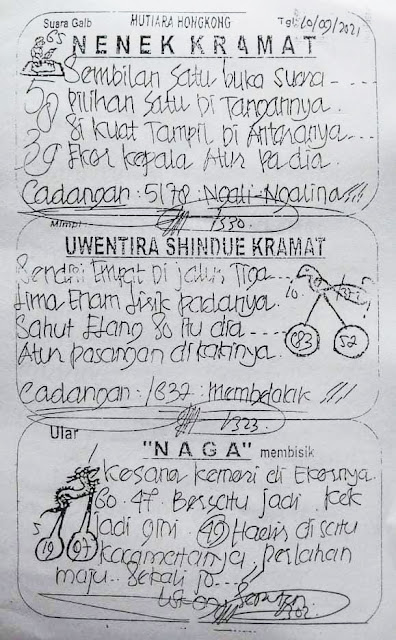 Suara Gaib MUTIARA HONGKONG Tgl: 20/09/2021
65
NENEK KRAMAT
Sembilan Satu buka suara
Pilihan Satu Di Tangannya.
Si Kuat Tampil Di Antaranya
Ekor kepala Atur pa dia.
Cadangan: 5178. Ngali-Ngalina
1330.
Mimpi
UWENTIRA SHINDUE KRAMAT
Sendiri Empat Di jalur Tiga
Lima Enam bisik padanya.
Sahut Elang 80 itu dia
Atur pasangan di kakinya.
83 52
Cadangan: 1832: Membelalak
1323.
Ular
"NAGA" membisik
Kesana kemari di Ekornya.
60. 47. Bersatu jadi kek
jadi gini. 49 Hadir di satu
19 07
karamatanya. perlahan
maju. Sekali jo